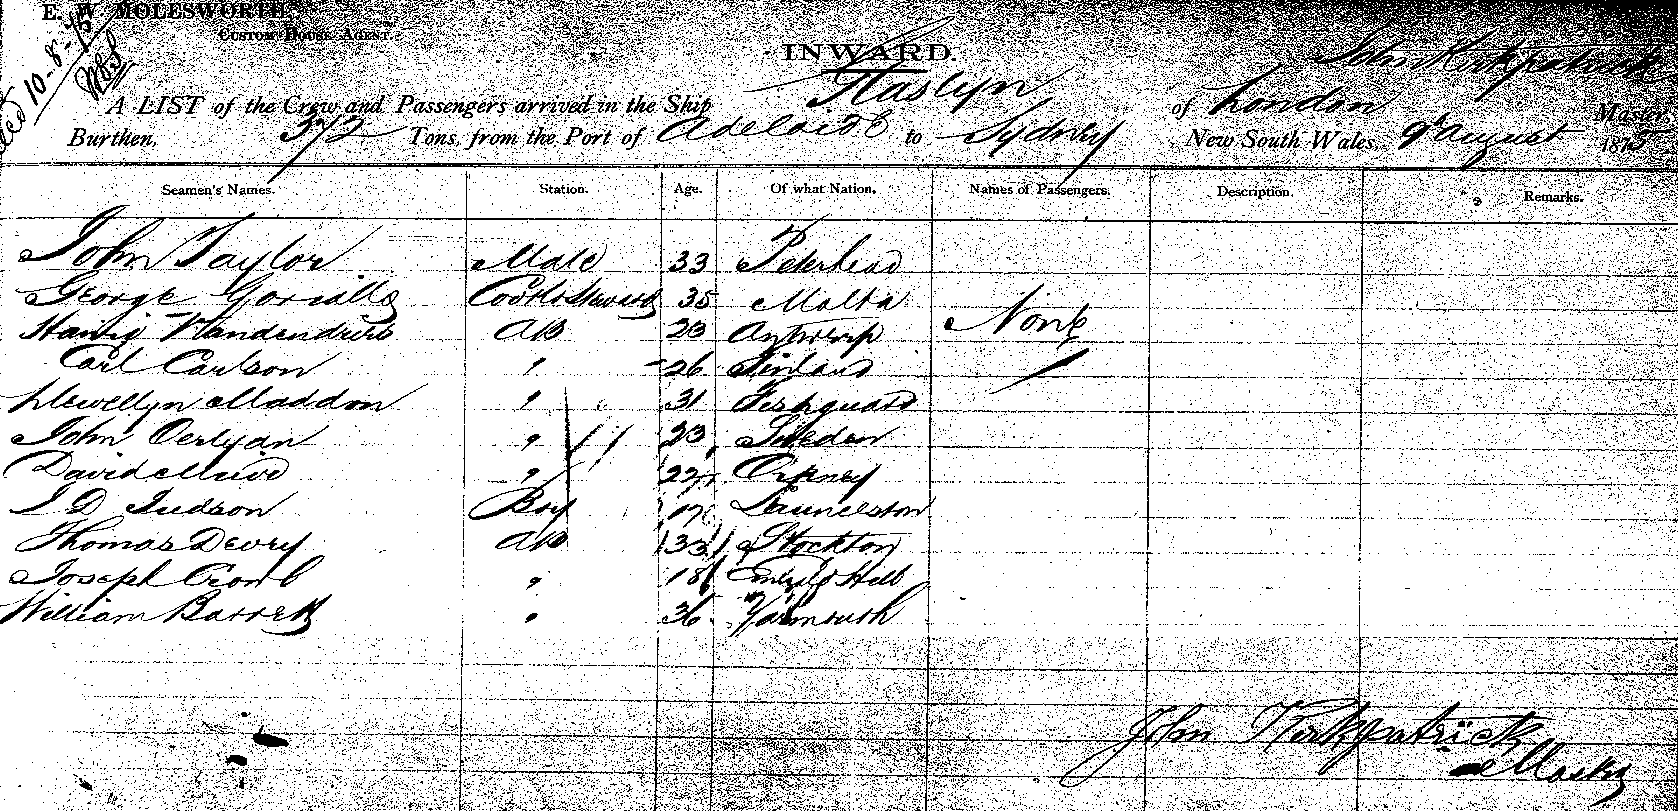 E. W. MOLESWORTH.
CUSTOM HOUSE AGENT.
10-8-75
INWARD.
A LIST of the Crew and Passengers arrived in the Ship Haslyn of London John Kirkpatrick Master,
Burthen, 372 Tons, from the Port of Adelaide to Sydney New South Wales, 9th August 1875
Seamen's Names. Station. Age. Of what Nation. Names of Passengers. Description. Remarks.
John Taylor Mate 33 Peterhead
George Cook & Steward 35 Malta
AB 23 Antwerp None
Carl Carlson " 26 Finland
Llewellyn Maddon " 31 Fishguard
John " 23 Sweden
David " 22 Orkney
J D Judson Boy 17 Launceston
Thomas Devry AB 33 Stockton
Joseph Cromb " 18 Emerald Hill
William Barrett " 36 Yarmouth
John Kirkpatrick
Master